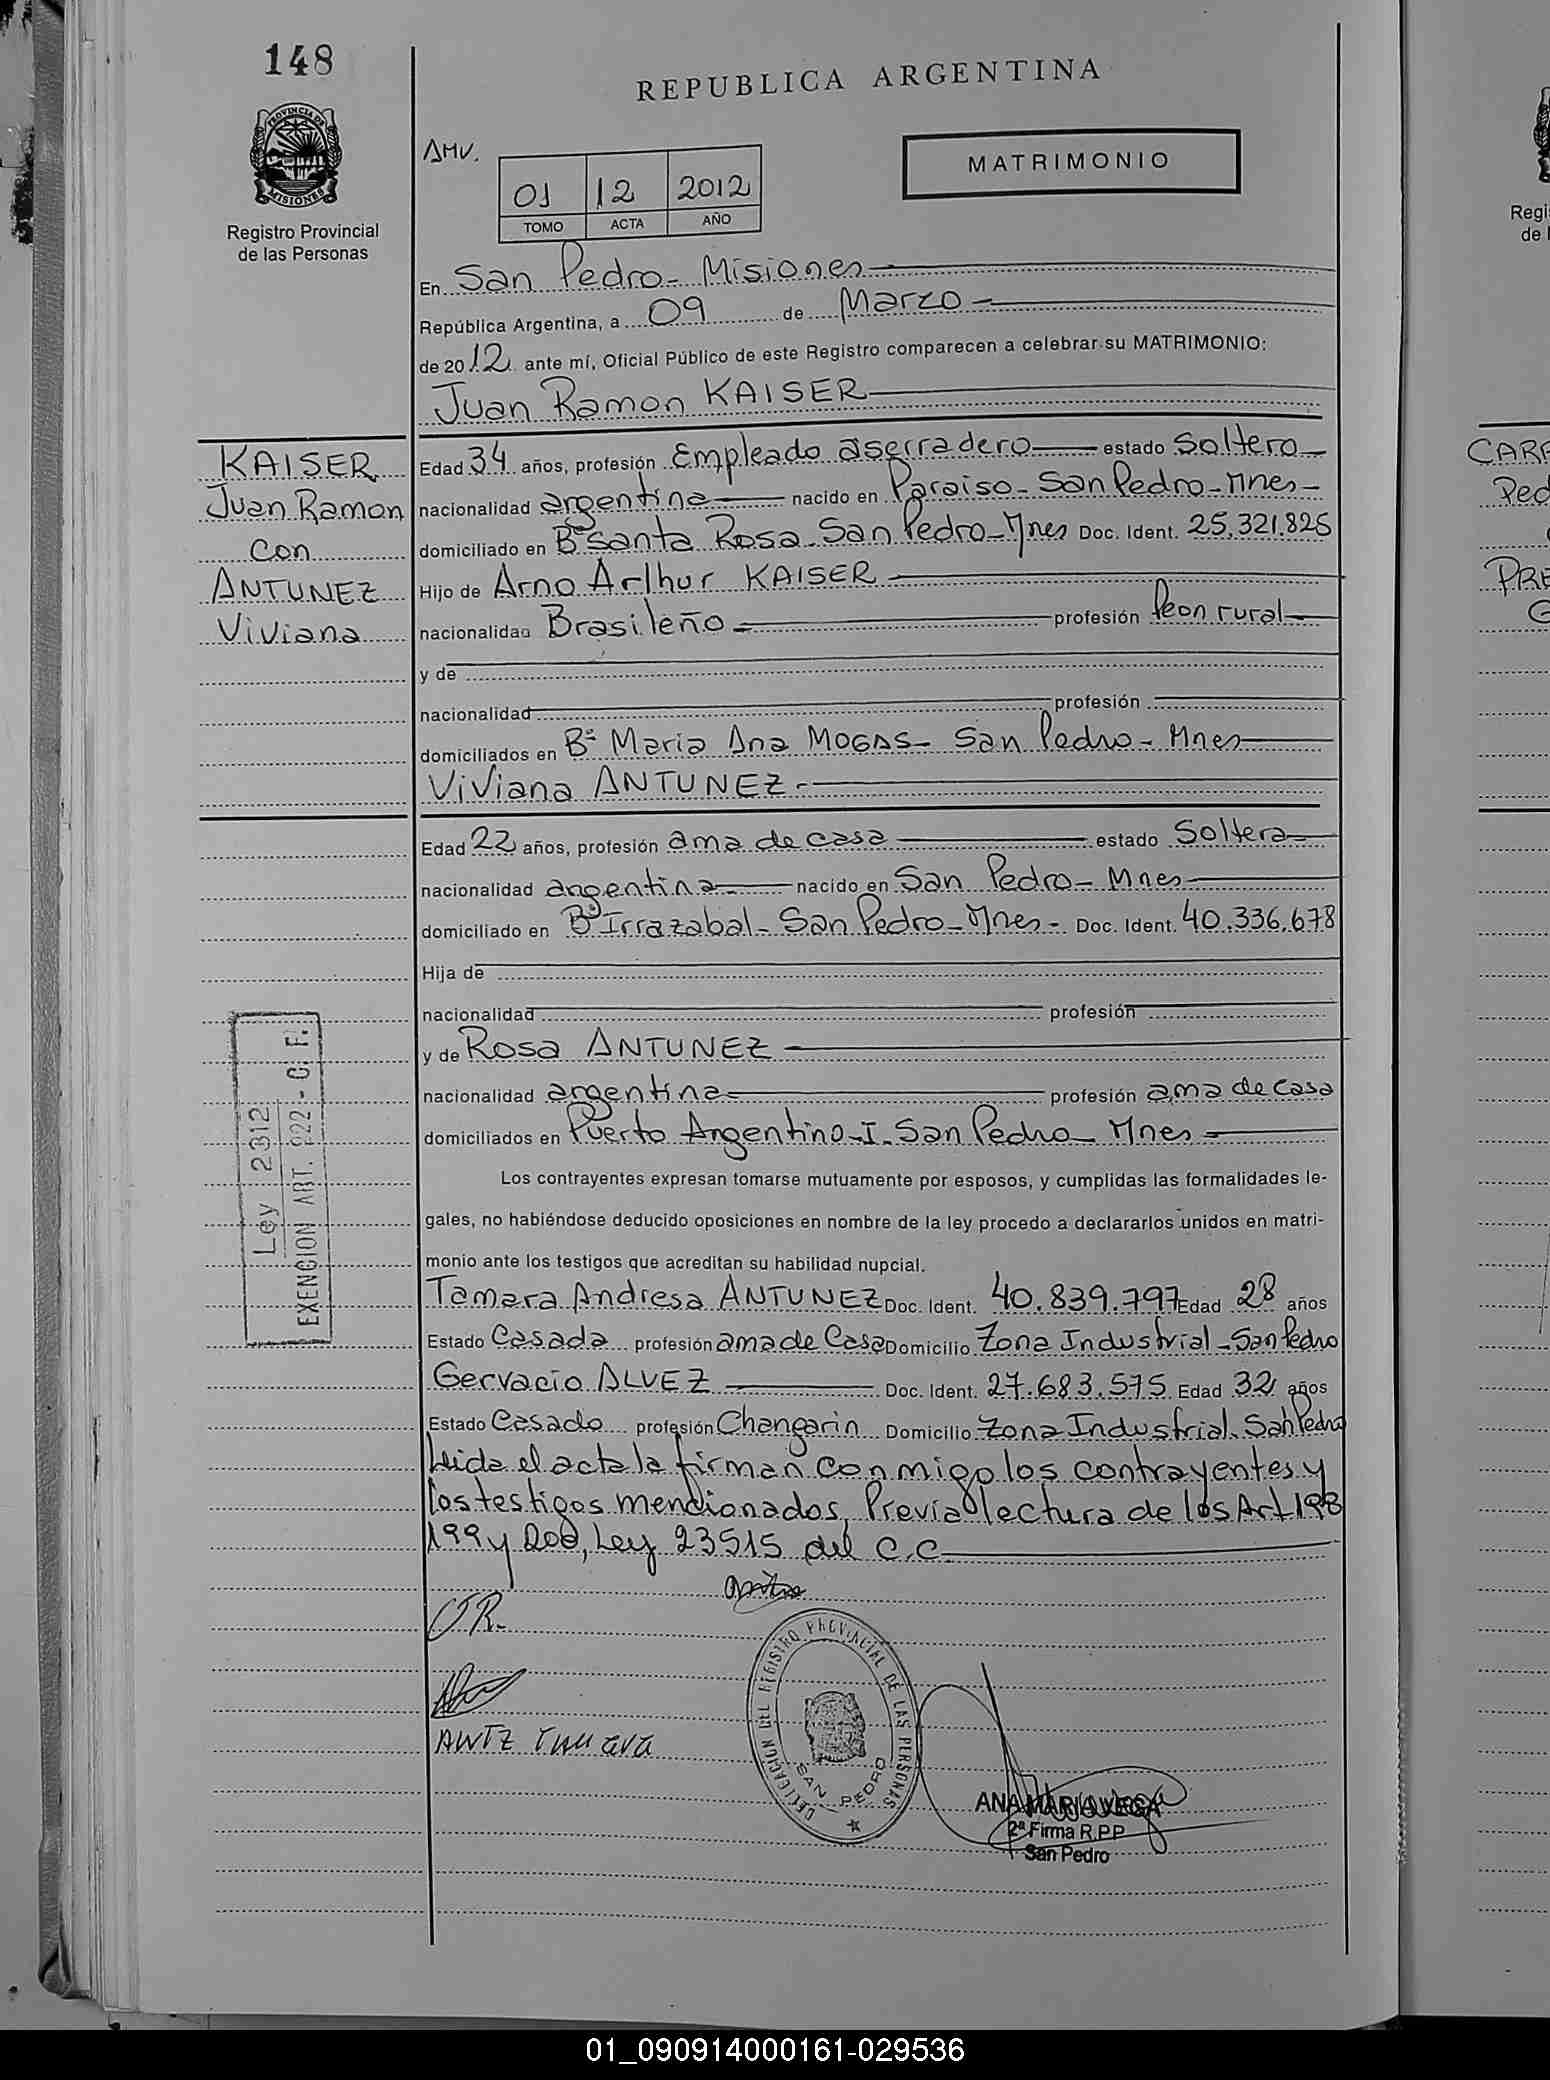 148
REPUBLICA ARGENTINA
PROVINCIA DE
MISIONES
Registro Provincial
de las Personas
AMV.
01 12 2012
TOMO ACTA AÑO
MATRIMONIO
En San Pedro - Misiones
República Argentina, a 09 de Marzo
de 2012 ante mí, Oficial Público de este Registro comparecen a celebrar su MATRIMONIO:
Juan Ramon KAISER
KAISER
Juan Ramon
con
ANTUNEZ
Viviana
Edad 34 años, profesión Empleado aserradero estado Soltero
nacionalidad argentina nacido en Paraiso - San Pedro - Mnes -
domiciliado en Bº Santa Rosa - San Pedro - Mnes Doc. Ident. 25.321.826
Hijo de Arno Arthur KAISER
nacionalidad Brasileño profesión Peon rural
y de
nacionalidad profesión
domiciliados en Bº Maria Ana MOGAS - San Pedro - Mnes
Viviana ANTUNEZ -
Edad 22 años, profesión ama de casa estado Soltera
nacionalidad argentina nacido en San Pedro - Mnes
domiciliado en Bº Irrazabal - San Pedro - Mnes - Doc. Ident. 40.336.678
Hija de
nacionalidad profesión
y de Rosa ANTUNEZ
nacionalidad argentina profesión ama de casa
domiciliados en Puerto Argentino - I - San Pedro - Mnes
Ley 2312
EXENCION ART. 222 - C. F.
Los contrayentes expresan tomarse mutuamente por esposos, y cumplidas las formalidades le-
gales, no habiéndose deducido oposiciones en nombre de la ley procedo a declararlos unidos en matri-
monio ante los testigos que acreditan su habilidad nupcial.
Tamara Andresa ANTUNEZ Doc. Ident. 40.839.797 Edad 28 años
Estado Casada profesión ama de Casa Domicilio Zona Industrial - San Pedro
Gervacio ALVEZ Doc. Ident. 27.683.575 Edad 32 años
Estado Casado profesión Changarin Domicilio Zona Industrial - San Pedro
Leida el acta la firman conmigo los contrayentes y
los testigos mencionados, Previa lectura de los Art 198
199 y 200, Ley 23515 del C.C.
J.R.
DELEGACION DEL REGISTRO PROVINCIAL DE LAS PERSONAS
SAN PEDRO
ANA MARIA VEGA
2ª Firma R.P.P
San Pedro
Regi
de l
CARR
Ped
PRE
G
01_090914000161-029536